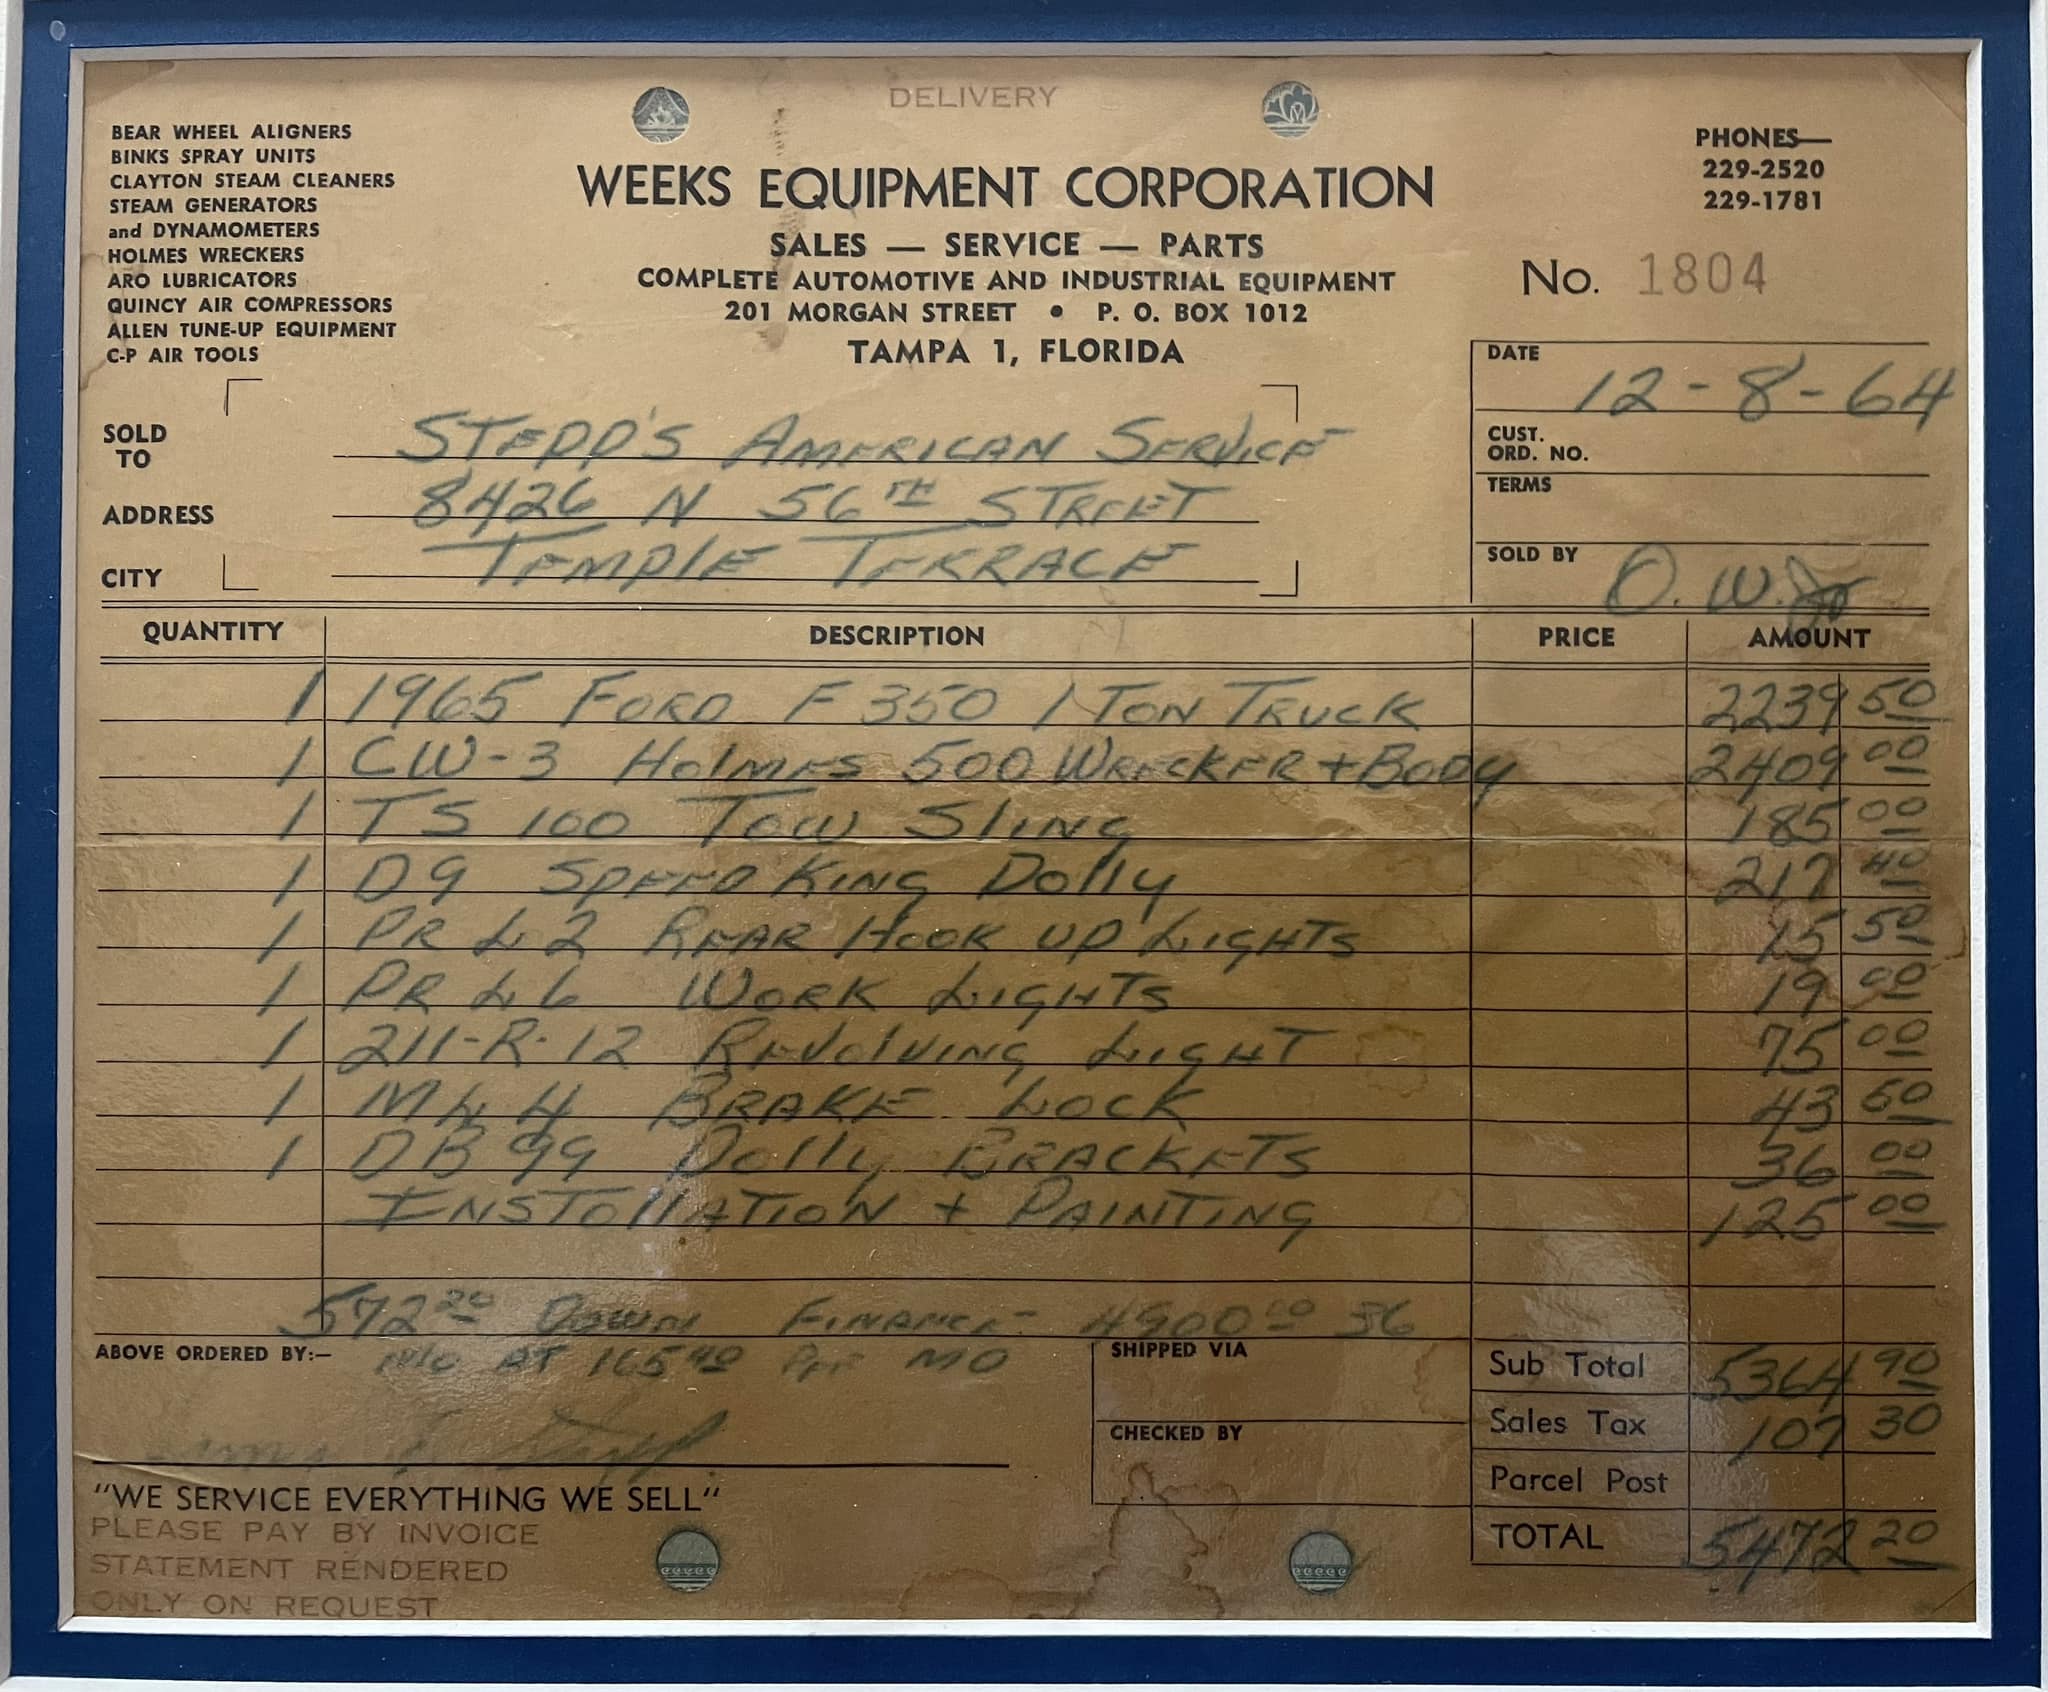 DELIVERY
BEAR WHEEL ALIGNERS
BINKS SPRAY UNITS
CLAYTON STEAM CLEANERS
STEAM GENERATORS
and DYNAMOMETERS
HOLMES WRECKERS
ARO LUBRICATORS
QUINCY AIR COMPRESSORS
ALLEN TUNE-UP EQUIPMENT
C-P AIR TOOLS
WEEKS EQUIPMENT CORPORATION
SALES — SERVICE — PARTS
COMPLETE AUTOMOTIVE AND INDUSTRIAL EQUIPMENT
201 MORGAN STREET • P. O. BOX 1012
TAMPA 1, FLORIDA
PHONES—
229-2520
229-1781
No. 1804
DATE 12-8-64
CUST. ORD. NO.
TERMS
SOLD BY O. W. Jr
SOLD TO STEPP'S AMERICAN SERVICE
ADDRESS 8426 N 56TH STREET
CITY TEMPLE TERRACE
QUANTITY DESCRIPTION PRICE AMOUNT
1 1965 FORD F 350 1 TON TRUCK 2239 50
1 CW-3 HOLMES 500 WRECKER + BODY 2409 00
1 TS 100 TOW SLING 185 00
1 D9 SPEED KING DOLLY 217 40
1 PR L2 REAR HOOK UP LIGHTS 15 50
1 PR L6 WORK LIGHTS 19 00
1 211-R-12 REVOLVING LIGHT 75 00
1 ML4 BRAKE LOCK 43 50
1 DB 99 DOLLY BRACKETS 36 00
INSTOLLATION + PAINTING 125 00
572 20 DOWN FINANCE 4900 00 36
AT 165 40 PER MO
ABOVE ORDERED BY:—
SHIPPED VIA
CHECKED BY
Sub Total 5364 90
Sales Tax 107 30
Parcel Post
TOTAL 5472 20
"WE SERVICE EVERYTHING WE SELL"
PLEASE PAY BY INVOICE
STATEMENT RENDERED
ONLY ON REQUEST